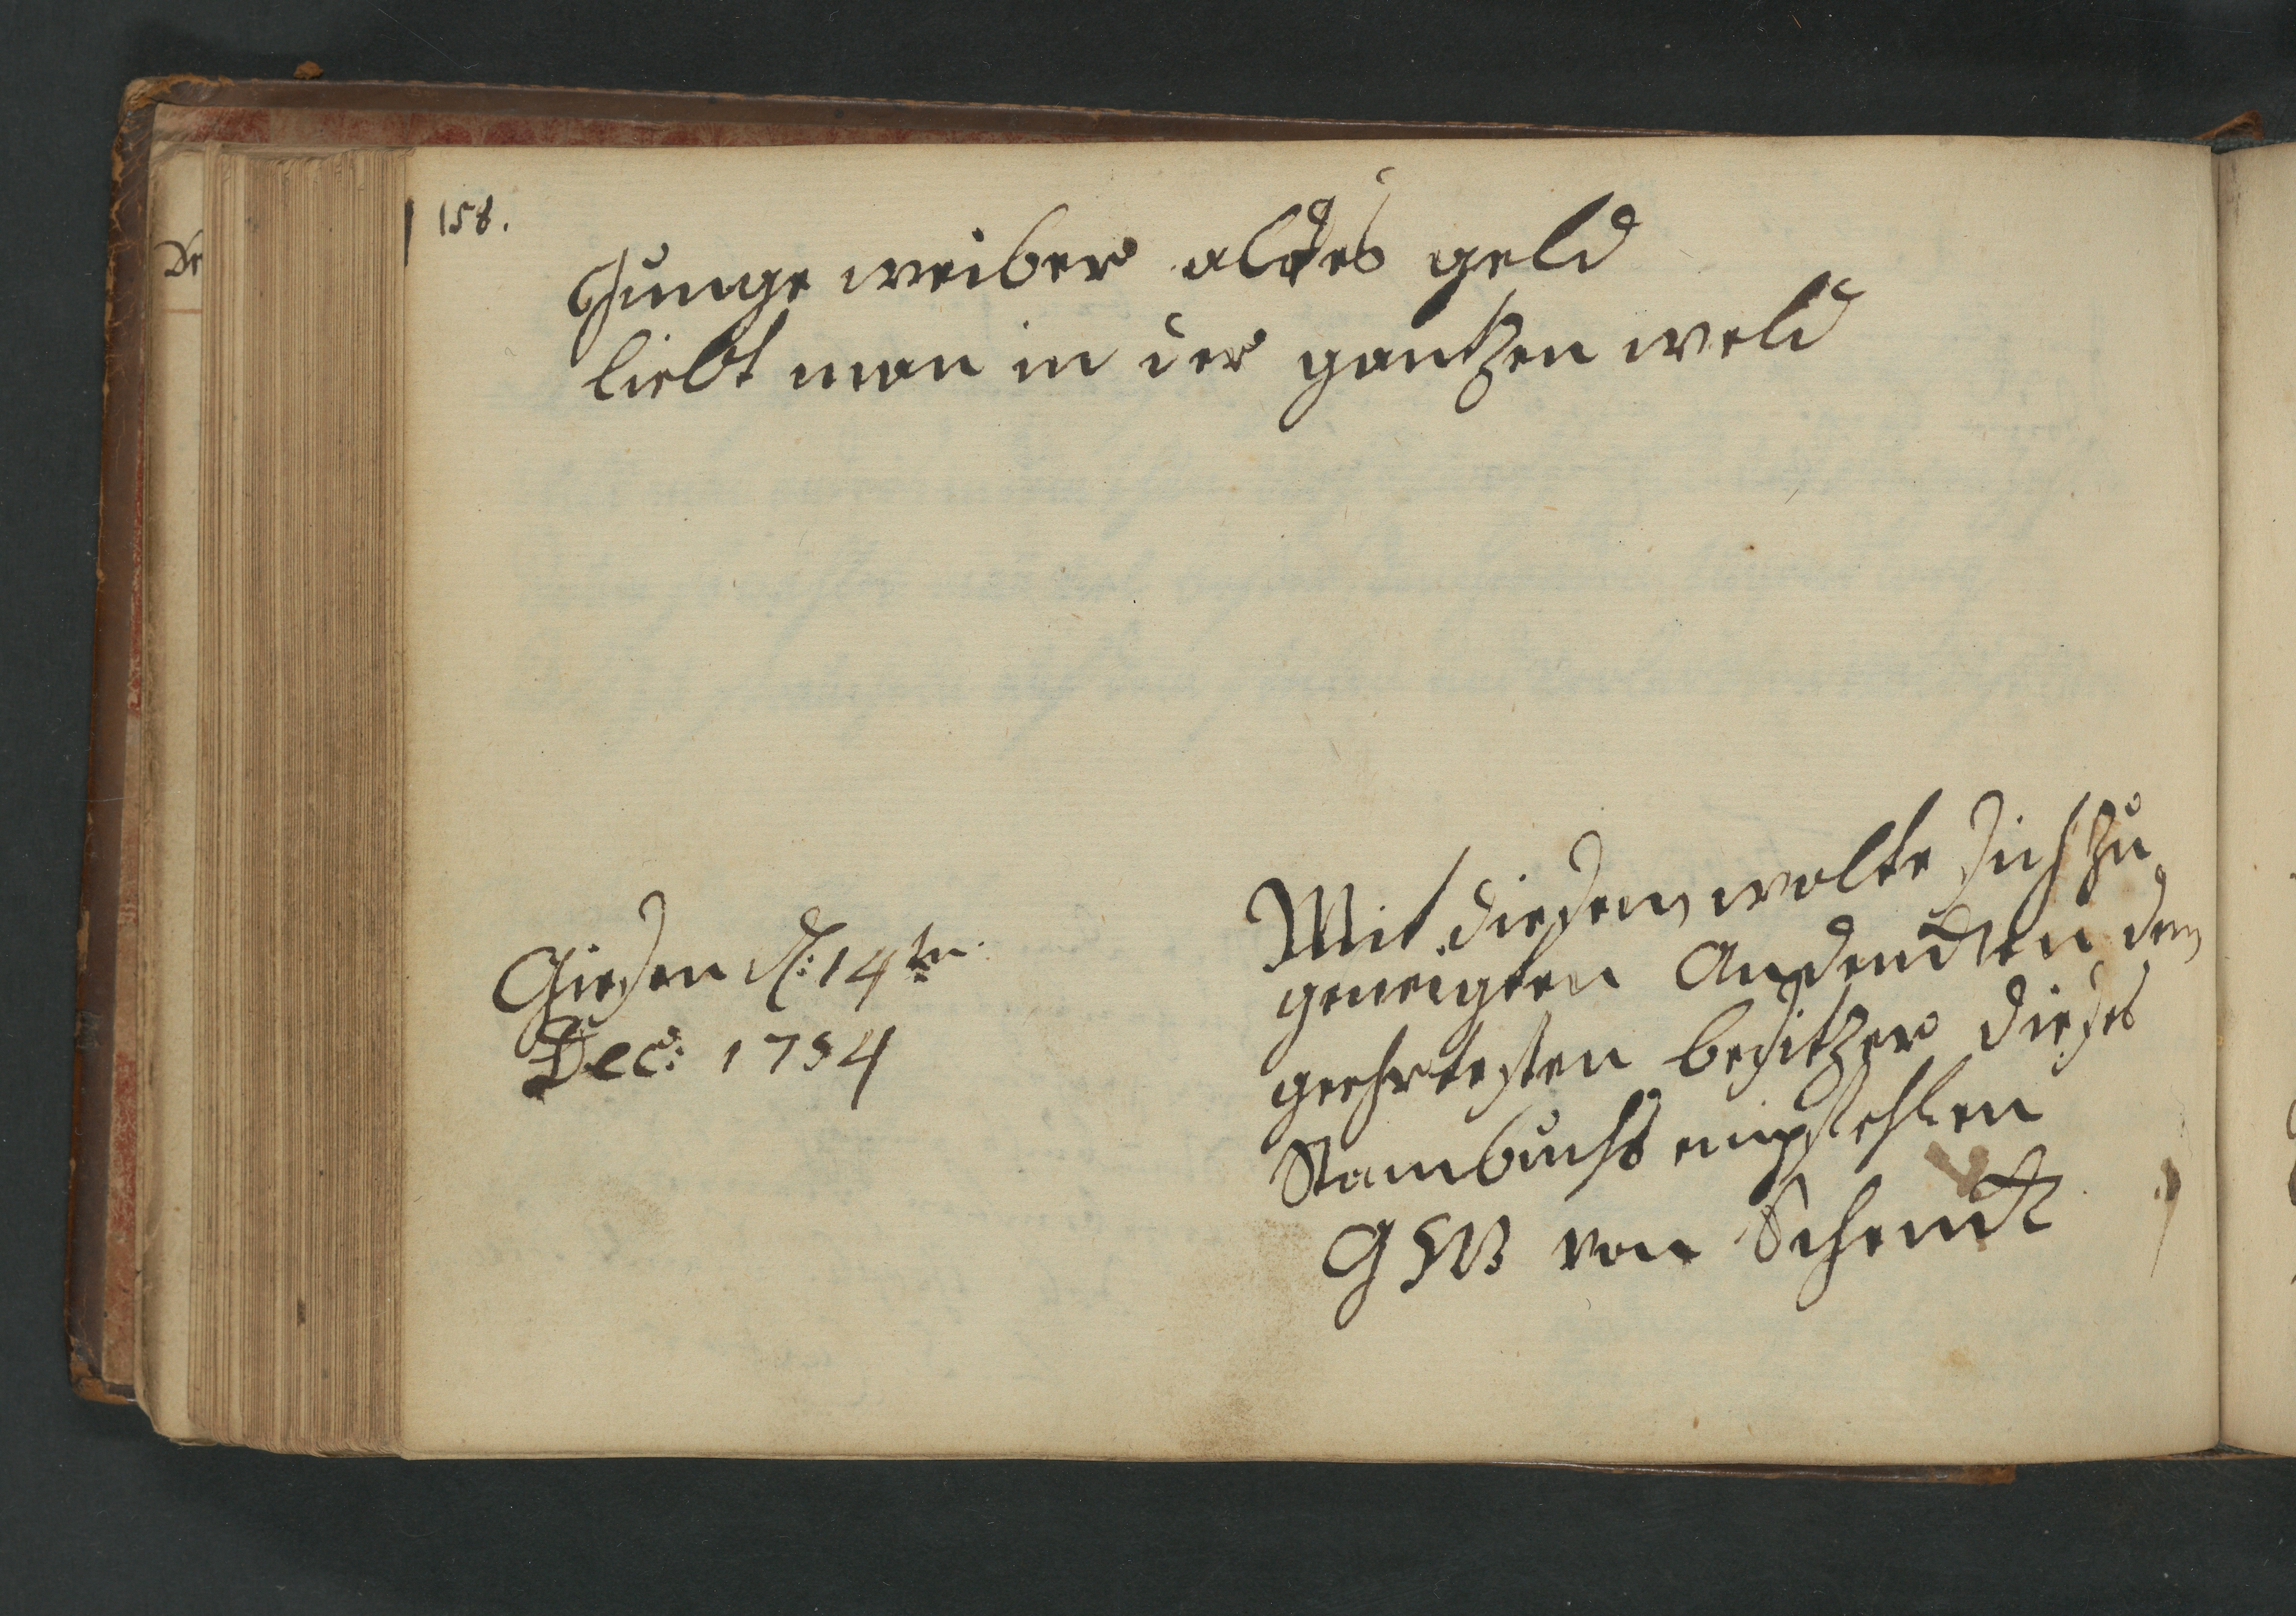 158.
Junge weiber altes geld
liebt man in der gantzen weld
Giesen d: 14ten
Dec: 1754
Mit diesem wolte sich zu
geneigten Andencken dem
geehrtesten besitzer dieses
Stambuchs empfehlen
von Schenck